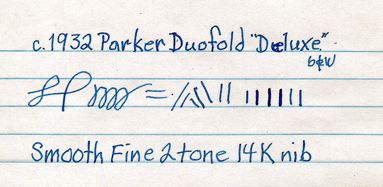 c. 1932 Parker Duofold "Deluxe"
b&w
Smooth Fine 2tone 14K nib